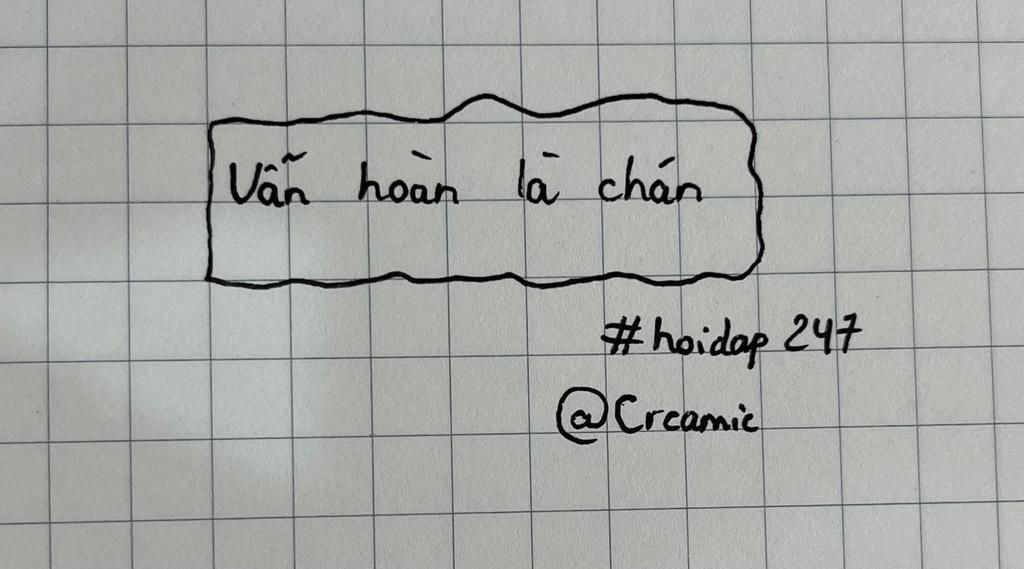 Vẫn hoàn là chán
#hoidap 247
@Crcamic